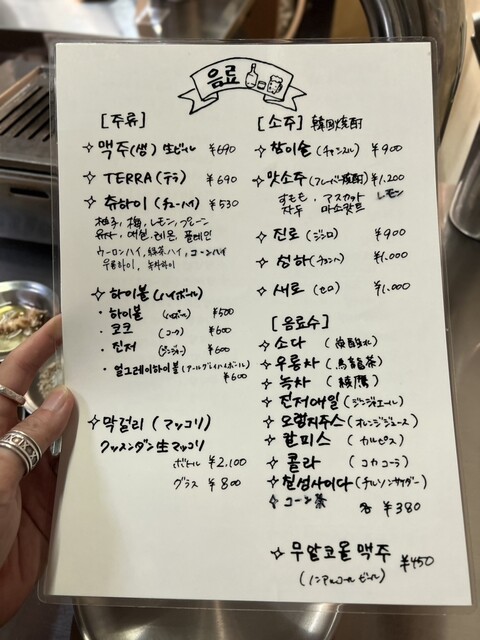 음료
[주류]
✧ 맥주(생) 生ビール ¥690
✧ TERRA (テラ) ¥690
✧ 츄하이 (チューハイ) ¥530
柚子, 梅, レモン, プレーン
유자, 매실, 레몬, 플레인
ウーロンハイ, 緑茶ハイ, コーンハイ
우롱하이, 녹차하이
✧ 하이볼 (ハイボール)
・하이볼 (ハイボール) ¥500
・코코 (コーク) ¥600
・진저 (ジンジャー) ¥600
・얼그레이하이볼 (アールグレイハイボール)
¥600
✧ 막걸리 (マッコリ)
クッスンダン生マッコリ
ボトル ¥2,100
グラス ¥800
[소주] 韓国焼酎
✧ 참이슬 (チャミスル) ¥900
✧ 맛소주 (フレーバー焼酎) ¥1,200
すもも, マスカット レモン
자두 마스캇트
✧ 진로 (ジンロ) ¥900
✧ 청하 (チョンハ) ¥1,000
✧ 새로 (セロ) ¥1,000
[음료수]
✧ 소다 (炭酸水)
✧ 우롱차 (烏龍茶)
✧ 녹차 (綾鷹)
✧ 진저에일 (ジンジャエール)
✧ 오렌지주스 (オレンジジュース)
✧ 칼피스 (カルピス)
✧ 콜라 (コカコーラ)
✧ 칠성사이다 (チルソンサイダー)
✧ コーン茶 各 ¥380
✧ 무알코올 맥주 ¥450
(ノンアルコールビール)